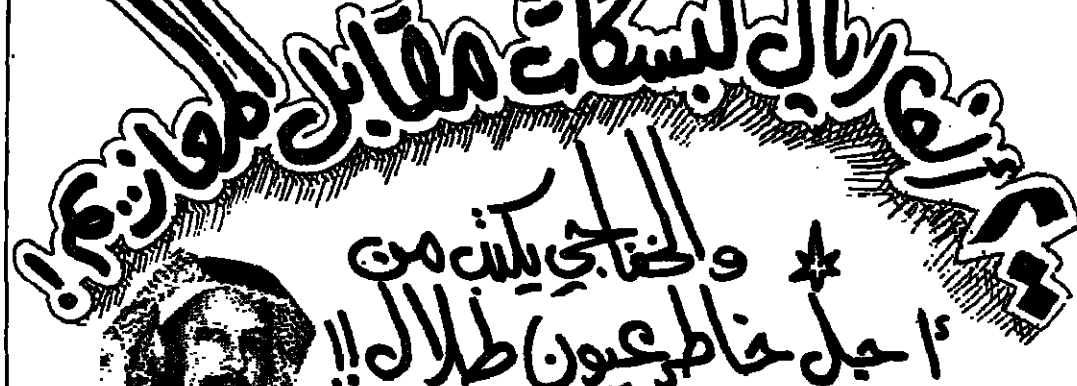 ألف ريال لبسكات مقابل المعازيم!
والخفاجي يكتب من
أجل خاطر عيون طلال!!